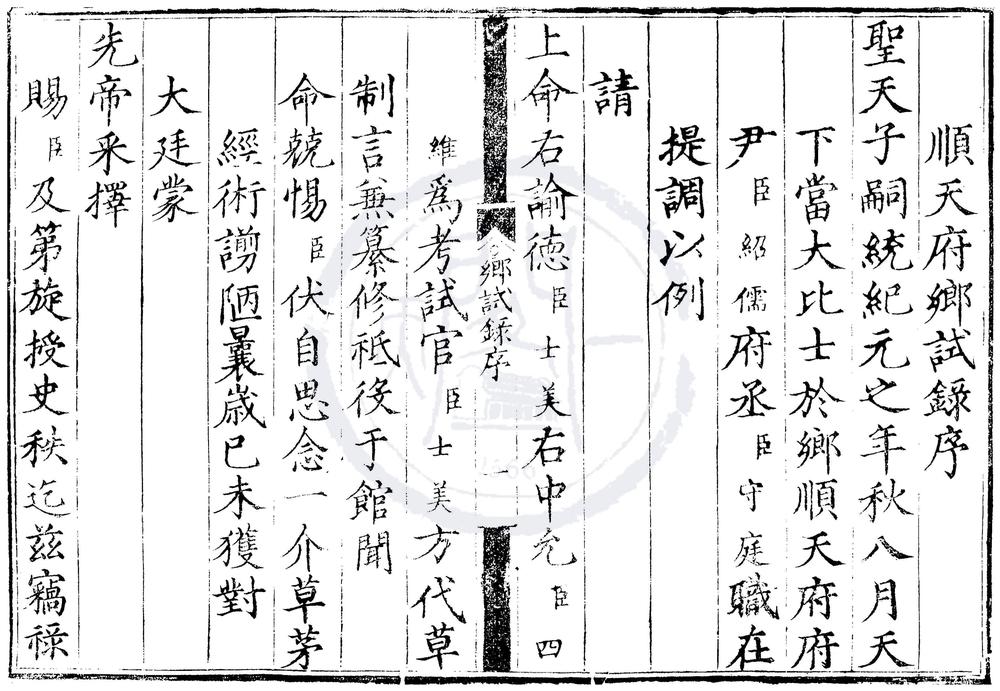 順天府鄉試錄序
聖天子嗣統紀元之年秋八月天
下當大比士於鄉順天府府
尹臣紹儒府丞臣守庭職在
提調以例
請
上命右諭德臣士美右中允臣四
鄉試錄序
維爲考試官臣士美方代草
制言兼纂修祗役于館聞
命兢惕臣伏自思念一介草茅
經術謭陋曩歲已未獲對
大廷蒙
先帝采擇
賜臣及第旋授史秩迄茲竊祿